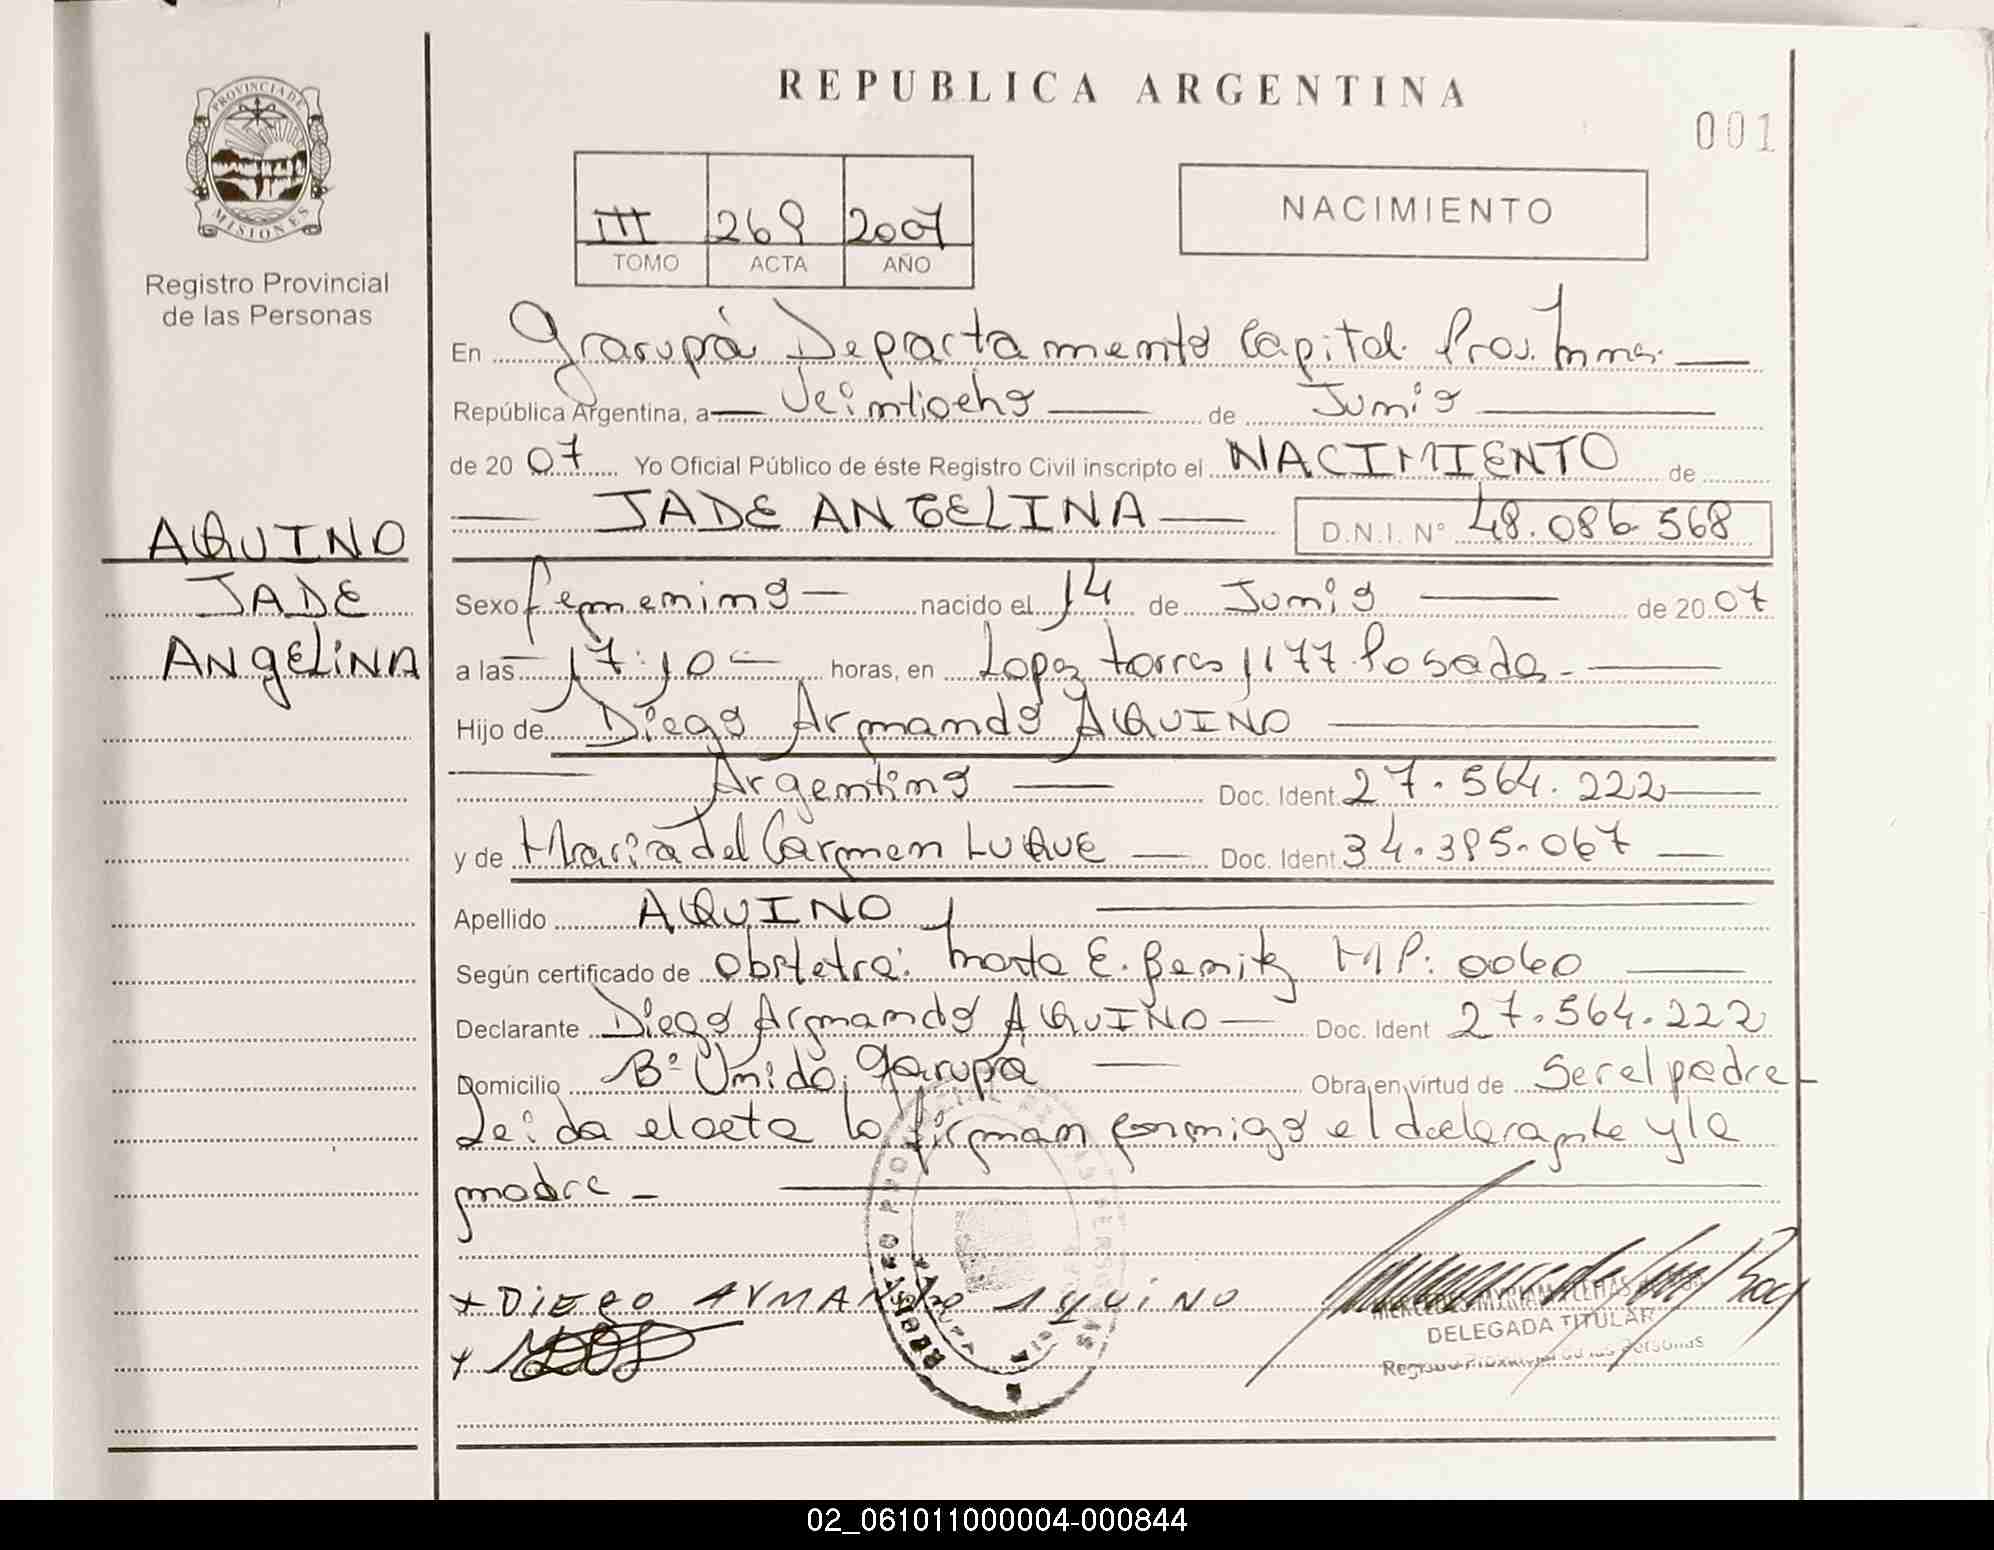 REPUBLICA ARGENTINA
001
PROVINCIA DE
MISIONES
Registro Provincial
de las Personas
III 269 2007
TOMO ACTA AÑO
NACIMIENTO
En Garupá Departamento Capital Prov. Mnes.
República Argentina, a Veintiocho de Junio
de 20 07 Yo Oficial Público de éste Registro Civil inscripto el NACIMIENTO de
JADE ANGELINA D.N.I. Nº 48.086.568
AQUINO
JADE
ANgELiNA
Sexo femenino nacido el 14 de Junio de 20 07
a las 17:10 horas, en Lopez torres 1177 Posadas
Hijo de Diego Armando AQUINO
Argentino Doc. Ident. 27.564.222
y de Maria del Carmen LUQUE Doc. Ident. 34.395.067
Apellido AQUINO
Según certificado de Obstetra: Marta E. Benitez MP: 0060
Declarante Diego Armando AQUINO Doc. Ident 27.564.222
Domicilio Bº Unido, Garupa Obra en virtud de Ser el padre
Leida el acta la firman conmigo el declarante y la
madre
x DiEgO ArMANDO AquiNO
DELEGADA TITULAR
Registro Provincial de las Personas
02_061011000004-000844